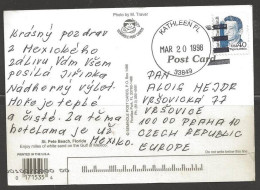 Photo by M. Travel
KATHLEEN FL
MAR 20 1998
33849
Post Card
40
Krásný pozdrav
z Mexického
zálivu Vám všem
posílá Jiřinka
Nádherný výlet
Moře je teplé
a čisté. Za těma
hotelama je už
Mexiko.
PAN
ALOIS MEJDR
VRŠOVICKÁ 77
VRŠOVICE
100 00 PRAHA 10
CZECH REPUBLIC
EUROPE
St. Pete Beach, Florida
Enjoy miles of white sand on the Gulf of Mexico.
PRINTED IN THE U.S.A.
0 171535 4